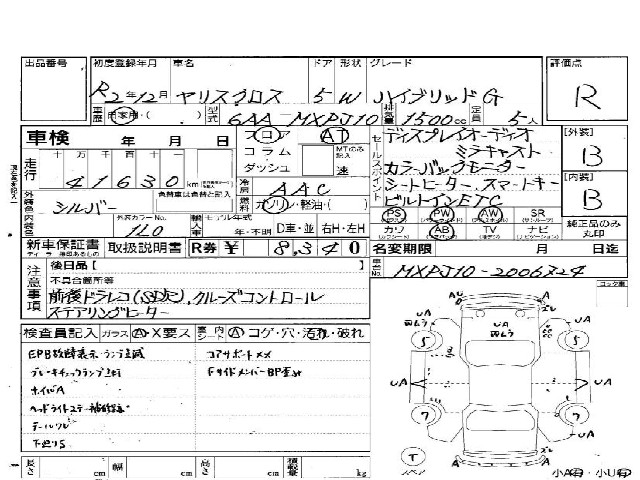 出品番号 初度登録年月 車名 ドア 形状 グレード 評価点
R2年12月 ヤリスクロス 5 W ハイブリッドG R
車歴 自家用・( ) 型式 6AA-MXPJ10 排気量 1500cc 定員 5人
車検 年 月 日 フロア AT セールスポイント ディスプレイオーディオ [外装]
走行 コラム MTのみ記入 ミラキャスト B
41630km ダッシュ 速 カラーバックモニター [内装]
冷房 AAC シートヒーター、スマートキー B
外装色 シルバー 燃料 ガソリン・軽油・( ) ビルトインETC
内装色 外装カラーNo. 1L0 輸入車 モデル年式 年・不明 D車・並 右H・左H
PS PW AW SR 純正品のみ丸印
カワ AB TV ナビ
新車保証書 取扱説明書 R券 ¥ 8,340 名変期限 月 日迄
注意事項 後日品[ ] 車台No. MXPJ10-2006324
不具合箇所等
前後ドラレコ(SDF)、クルーズコントロール
ステアリングヒーター
検査員記入 ガラス A・X要ス 内 シート A コゲ・穴・汚れ・破れ
EPB故障表示・ランプ点滅 コアサポートメメ
ブレーキチェックランプ点灯 FサイドメンバーBP歪み
ホイルA
ヘッドライトステー補修跡
下廻りS
長さ cm 幅 cm 高さ cm 積載量 kg
UA
UA
5
5
UA
UA
7
7
T
A
A
小A・小U